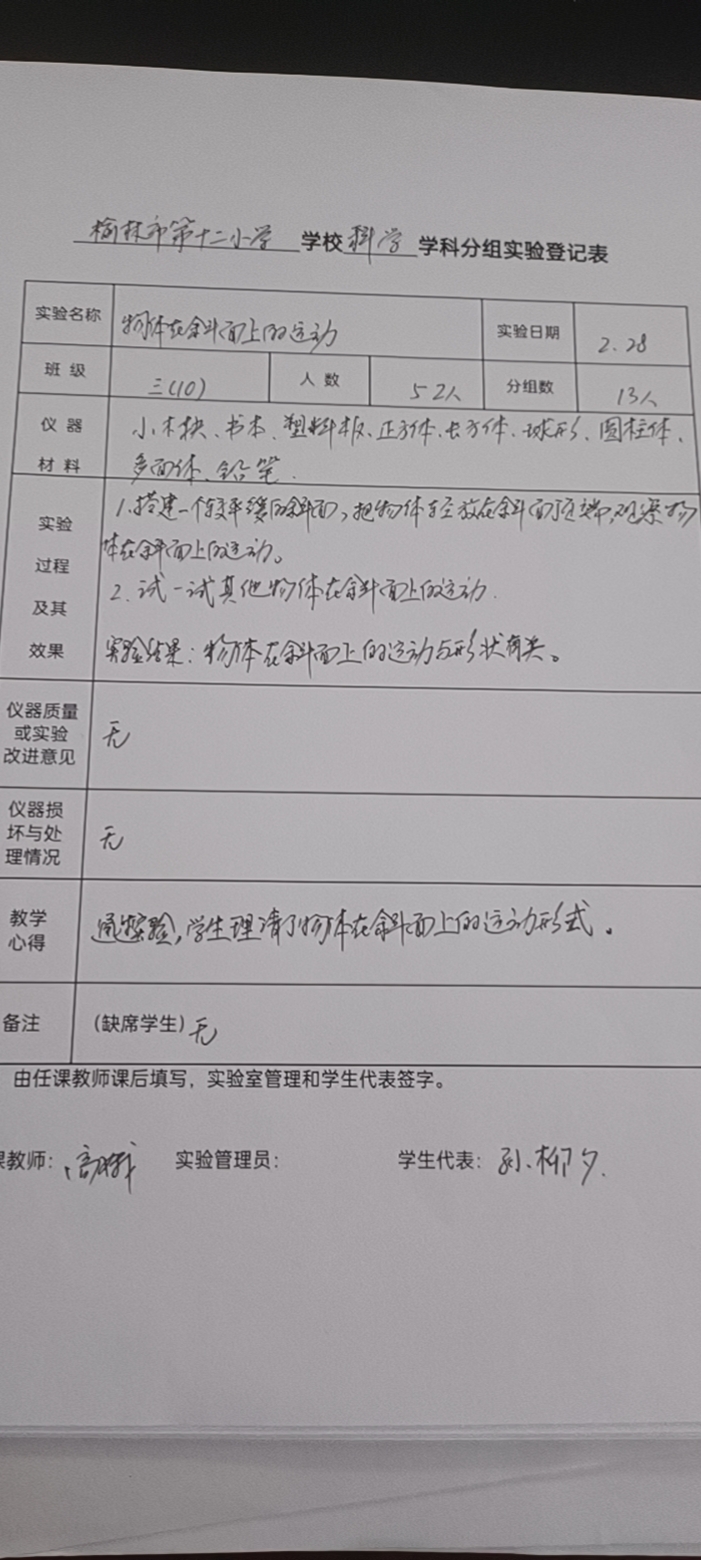 榆林市第十二小学 学校 科学 学科分组实验登记表
实验名称 物体在斜面上的运动 实验日期 2.28
班级 三(10) 人数 52人 分组数 13人
仪器 小木块、书本、塑料板、正方体、长方体、球形、圆柱体、
材料 多面体、铅笔.
1.搭建一个较平缓的斜面,把物体轻放在斜面顶端,观察物
实验
体在斜面上的运动。
过程
2.试一试其他物体在斜面上的运动.
及其
效果 实验结果:物体在斜面上的运动与形状有关。
仪器质量
或实验 无
改进意见
仪器损
坏与处 无
理情况
教学 通过实验,学生理清了物体在斜面上的运动形式。
心得
备注 (缺席学生) 无
由任课教师课后填写,实验室管理和学生代表签字。
课教师: 实验管理员: 学生代表: 孙柳夕.